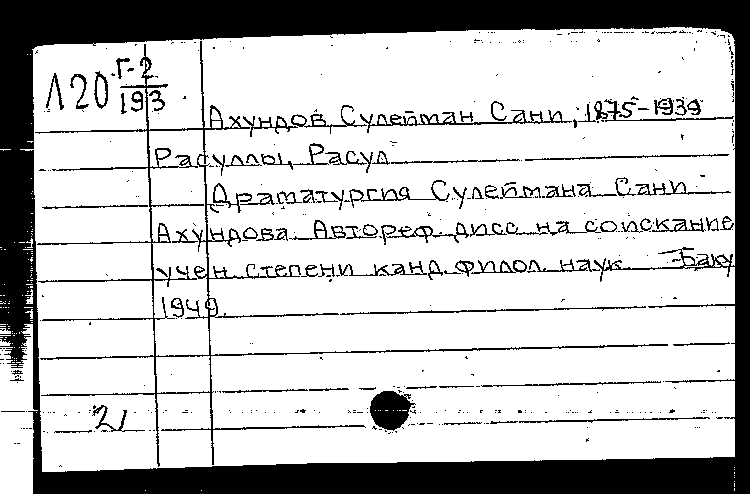 Л20 Г-2
193
Ахундов, Сулейман Сани, 1875-1939
Расуллы, Расул
Драматургия Сулеймана Сани
Ахундова. Автореф. дисс. на соискание
учен. степени канд. филол. наук. Баку
1949.
21